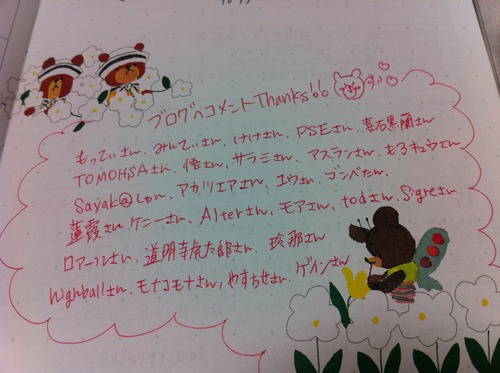 ブログへコメントThanks!!
もってぃさん、みんてぃさん、けけさん、PSEさん、喜右黒蘭さん
TOMOHSAさん、悟さん、サラミさん、アスランさん、もろキュウさん
Sayak@しゅん、アカツリエアさん、ユウさん、ゴンベたん、
蓮霞さん、ケニーさん、Alterさん、モアさん、todさん、Sigreさん
ロアールさん、道明寺虎太郎さん、玖那さん
highballさん、モナコモナさん、やすちせさん、ゲインさん